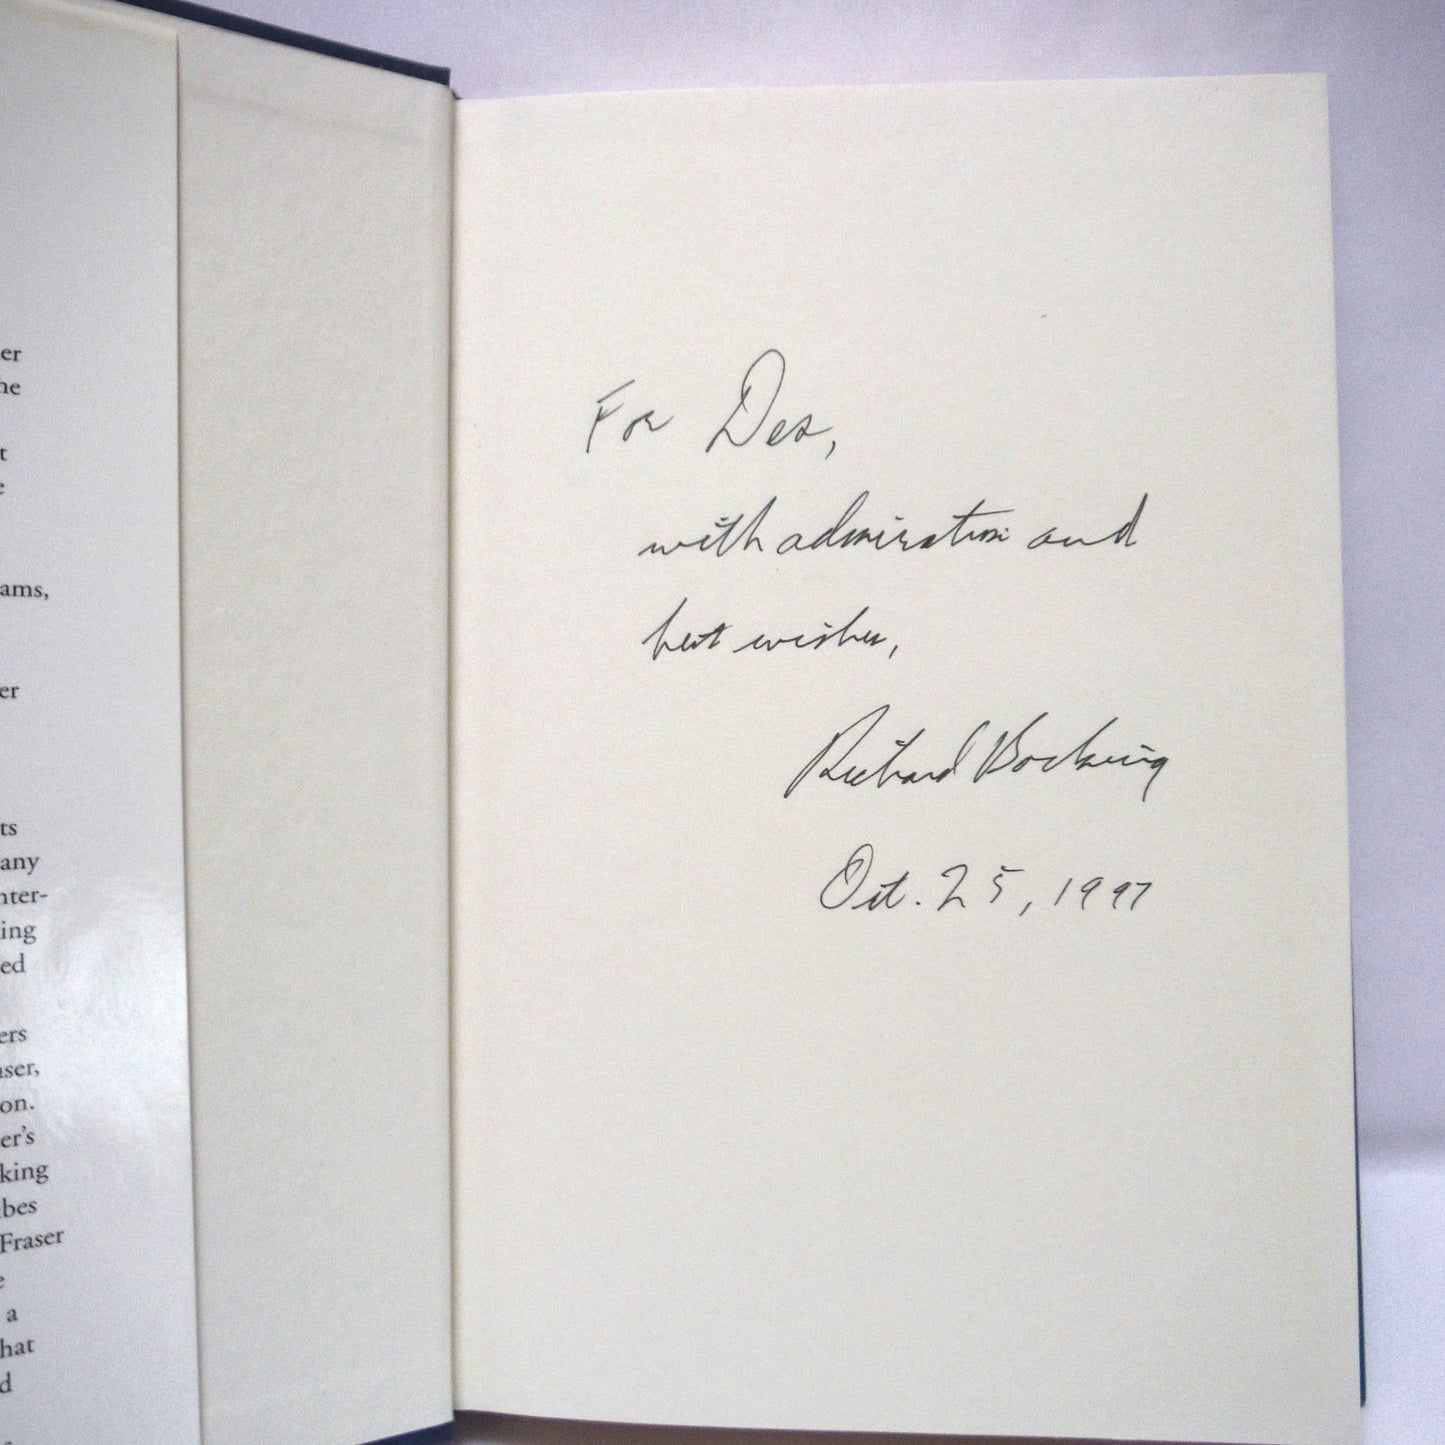 er
he
t
e
ams,
er
ts
any
nter-
ing
ed
ers
aser,
on.
er's
king
ibes
Fraser
e
a
hat
d
For Des,
with admiration and
best wishes,
Richard Bocking
Oct. 25, 1997